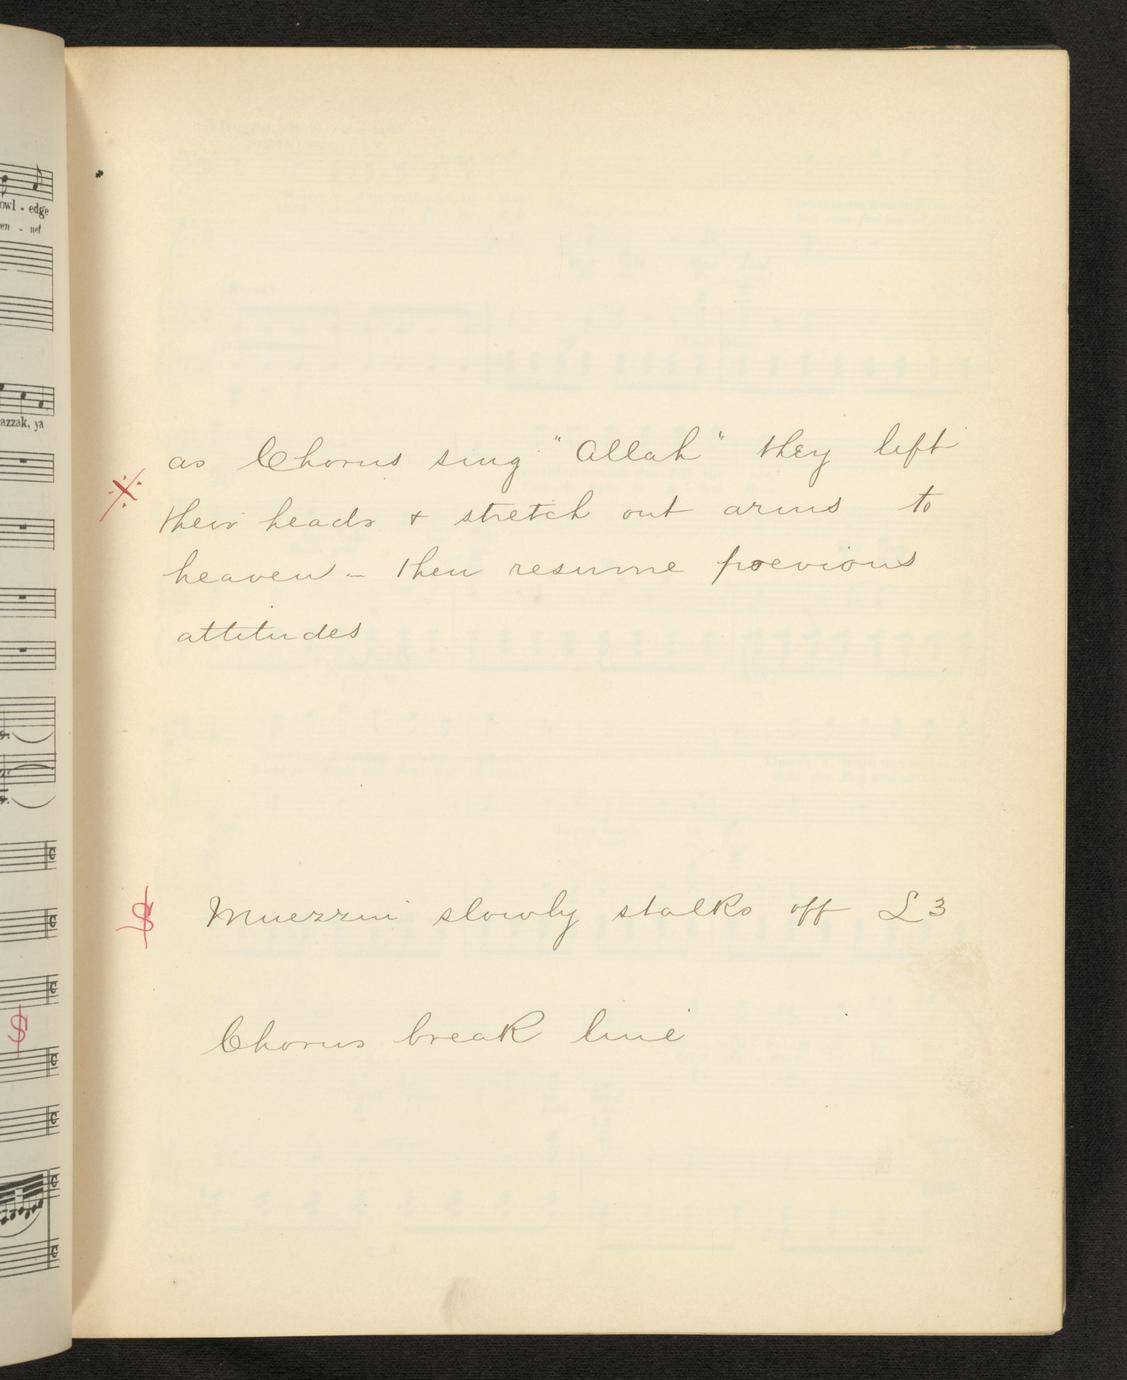 owl - edge
en - nel
azzak, ya
as Chorus sing "Allah" they lift
their heads & stretch out arms to
heaven – then resume previous
attitudes
Muezzin slowly stalks off L3
Chorus break line